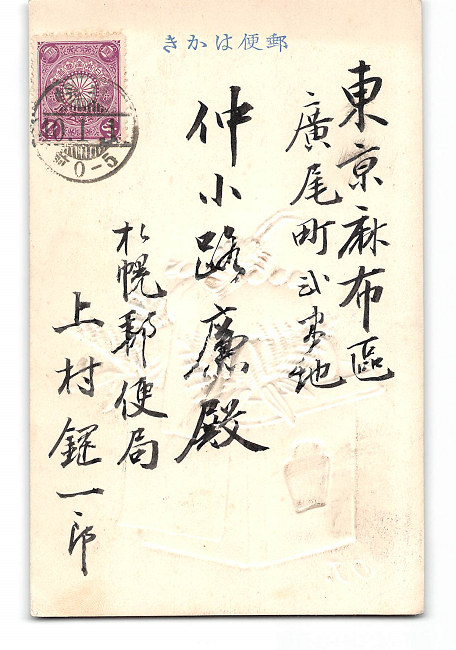 郵便はかき
東京麻布區
廣尾町弐番地
仲小路廉殿
札幌郵便局
上村鍟一郎
0-5